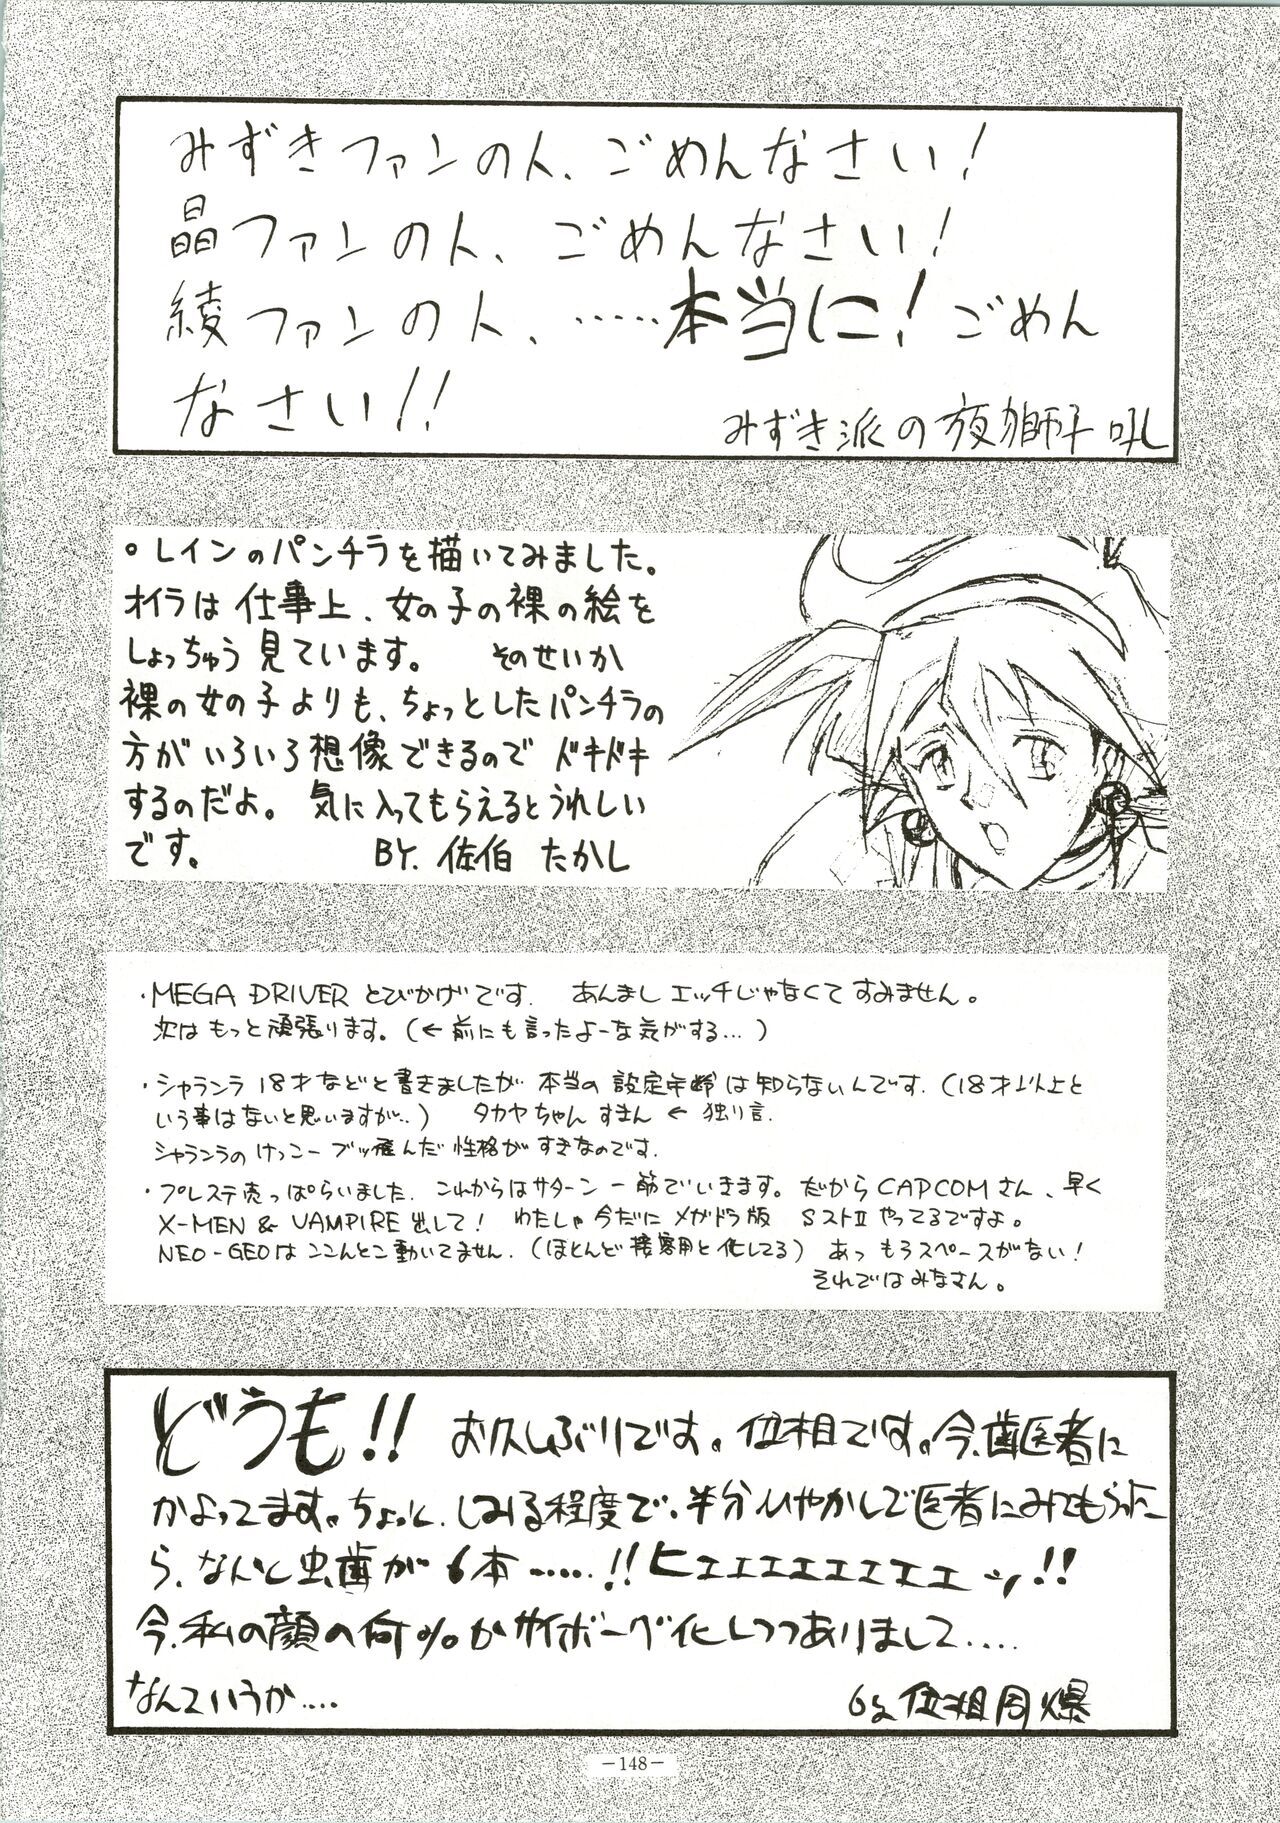 みずきファンの人、ごめんなさい!
晶ファンの人、ごめんなさい!
綾ファンの人、……本当に!ごめん
なさい!!
みずき派の夜獅子吼
○レインのパンチラを描いてみました。
オイラは仕事上、女の子の裸の絵を
しょっちゅう見ています。 そのせいか
裸の女の子よりも、ちょっとしたパンチラの
方がいろいろ想像できるのでドキドキ
するのだよ。気に入ってもらえるとうれしい
です。 BY. 佐伯 たかし
・MEGA DRIVER とびかげです. あんまし エッチじゃなくて すみません。
次は もっと頑張ります。(← 前にも言ったよーな気がする…)
・シャランラ 18才などと書きましたが 本当の 設定年齢は知らないんです.(18才以上と
いう事はないと思いますが…) タカヤちゃん すまん ← 独り言.
シャランラの けっこー ブッ飛んだ 性格が すきなのです.
・プレステ売っぱらいました. これからはサターン一筋でいきます。だからCAPCOMさん、早く
X-MEN & VAMPIRE出して! わたしゃ今だに メガドラ版 SストⅡ やってるですよ。
NEO-GEOは ここんとこ動いてません.(ほとんど接客用と化してる) あっ もうスペースがない!
それではみなさん。
どうも!! お久しぶりです。位相です。今、歯医者に
かよってます。ちょっと、しみる程度で、半分ひやかしで医者にみてもらった
ら、なんと虫歯が6本……!!ヒェェェェェェェェッ!!
今、私の顔の何%かサイボーグ化しつつありまして….
なんていうか….
by 位相同爆
-148-